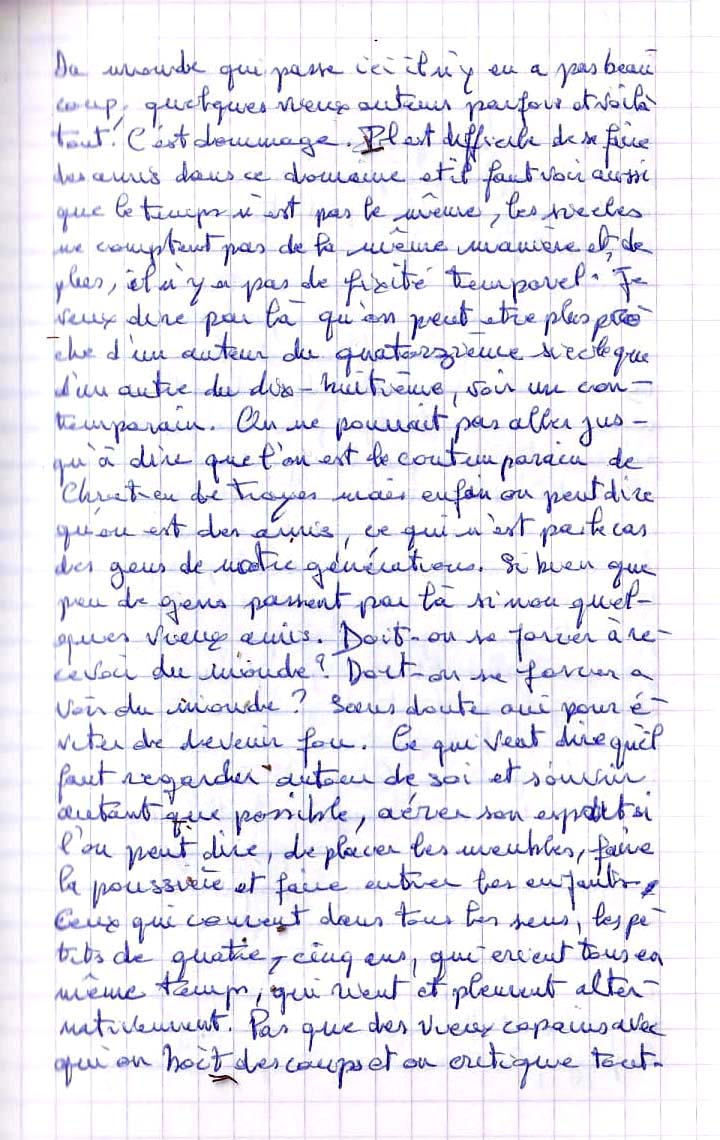 Du monde qui passe ici il n'y en a pas beau
coup, quelques vieux auteurs parfois et voilà
tout. C'est dommage. Il est difficile de se faire
des amis dans ce domaine et il faut voir aussi
que le temps n'est pas le même, les siècles
ne comptent pas de la même manière et, de
plus, il n'y a pas de fixité temporel. Je
veux dire par là qu'on peut etre plus pro
che d'un auteur du quatorzième siècle que
d'un autre du dix-huitième, voir un con-
temporain. On ne pourrait pas aller jus-
qu'à dire que l'on est le contemporain de
Chretien de Troyes mais enfin on peut dire
qu'on est des amis, ce qui n'est pas le cas
des gens de notre générations. Si bien que
peu de gens passent par là sinon quel-
ques vieux amis. Doit-on se forcer à re-
cevoir du monde? Doit-on se forcer a
voir du monde? Sans doute oui pour é-
viter de devenir fou. Ce qui veut dire qu'il
faut regarder autour de soi et s'ouvrir
autant que possible, aérer son esprit si
l'on peut dire, déplacer les meubles, faire
la poussière et faire entrer les enfants.
Ceux qui courent dans tous les sens, les pe
tits de quatre, cinq ans, qui crient tous en
même temps, qui rient et pleurent alter-
nativement. Pas que des vieux copains avec
qui on boit des coups et on critique tout.